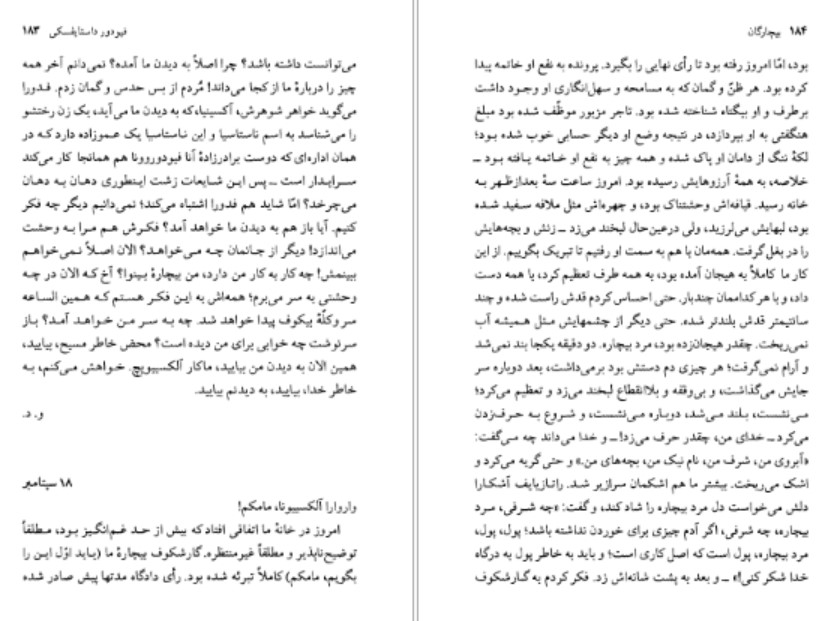 فیودور داستایفسکی ۱۸۳
می‌توانست داشته باشد؟ چرا اصلاً به دیدن ما آمده؟ نمی‌دانم آخر همه
چیز را دربارهٔ ما از کجا می‌داند! مُردم از بس حدس و گمان زدم. فدورا
می‌گوید خواهر شوهرش، آکسینیا، که به دیدن ما می‌آید، یک زن رختشو
را می‌شناسد به اسم ناستاسیا و این ناستاسیا یک عموزاده دارد که در
همان اداره‌ای که دوست برادرزادهٔ آنا فیودوروونا هم همانجا کار می‌کند
سرایدار است ــ پس این شایعات زشت اینطوری دهان به دهان
می‌چرخد؟ امّا شاید هم فدورا اشتباه می‌کند؛ نمی‌دانیم دیگر چه فکر
کنیم. آیا باز هم به دیدن ما خواهد آمد؟ فکرش هم مرا به وحشت
می‌اندازد! دیگر از جانمان چه می‌خواهد؟ الان اصلاً نمی‌خواهم
ببینمش! چه کار به کار من دارد، من بیچارهٔ بینوا؟ آخ که الان در چه
وحشتی به سر می‌برم؛ همه‌اش به این فکر هستم که همین الساعه
سر و کلّهٔ بیکوف پیدا خواهد شد. چه به سر من خواهد آمد؟ باز
سرنوشت چه خوابی برای من دیده است؟ محض خاطر مسیح، بیایید،
همین الان به دیدن من بیایید، ماکار آلکسییویچ. خواهش می‌کنم، به
خاطر خدا، بیایید، به دیدنم بیایید.
و. د.
۱۸ سپتامبر
واروارا آلکسییونا، مامکم!
امروز در خانهٔ ما اتفاقی افتاد که بیش از حد غم‌انگیز بود، مطلقاً
توضیح‌ناپذیر و مطلقاً غیرمنتظره. گارشکوف بیچارهٔ ما (باید اوّل این را
بگویم، مامکم) کاملاً تبرئه شده بود. رأی دادگاه مدتها پیش صادر شده
۱۸۴ بیچارگان
بود، امّا امروز رفته بود تا رأی نهایی را بگیرد. پرونده به نفع او خاتمه پیدا
کرده بود. هر ظنّ و گمان که به مسامحه و سهل‌انگاری او وجود داشت
برطرف و او بیگناه شناخته شده بود. تاجر مزبور موظّف شده بود مبلغ
هنگفتی به او بپردازد، در نتیجه وضع او دیگر حسابی خوب شده بود؛
لکهٔ ننگ از دامان او پاک شده و همه چیز به نفع او خاتمه یافته بود ــ
خلاصه، به همهٔ آرزوهایش رسیده بود. امروز ساعت سهٔ بعدازظهر به
خانه رسید. قیافه‌اش وحشتناک بود، و چهره‌اش مثل ملافه سفید شده
بود، لبهایش می‌لرزید، ولی درعین‌حال لبخند می‌زد ــ زنش و بچه‌هایش
را در بغل گرفت. همه‌مان با هم به سمت او رفتیم تا تبریک بگوییم. از این
کار ما کاملاً به هیجان آمده بود، به همه طرف تعظیم کرد، با همه دست
داد، و با هر کداممان چندبار. حتی احساس کردم قدش راست شده و چند
سانتیمتر قدش بلندتر شده. حتی دیگر از چشمهایش مثل همیشه آب
نمی‌ریخت. چقدر هیجان‌زده بود، مرد بیچاره. دو دقیقه یکجا بند نمی‌شد
و آرام نمی‌گرفت؛ هر چیزی دم دستش بود برمی‌داشت، بعد دوباره سر
جایش می‌گذاشت، و بی‌وقفه و بلاانقطاع لبخند می‌زد و تعظیم می‌کرد؛
می‌نشست، بلند می‌شد، دوباره می‌نشست، و شروع به حرف‌زدن
می‌کرد ــ خدای من، چقدر حرف می‌زد! ــ و خدا می‌داند چه می‌گفت:
«آبروی من، شرف من، نام نیک من، بچه‌های من.» و حتی گریه می‌کرد و
اشک می‌ریخت. بیشتر ما هم اشکمان سرازیر شد. راتازیایف آشکارا
دلش می‌خواست دل مرد بیچاره را شاد کند، و گفت: «چه شرفی، مرد
بیچاره، چه شرفی، اگر آدم چیزی برای خوردن نداشته باشد؛ پول، پول،
مرد بیچاره، پول است که اصل کاری است؛ و باید به خاطر پول به درگاه
خدا شکر کنی!» ــ و بعد به پشت شانه‌اش زد. فکر کردم به گارشکوف